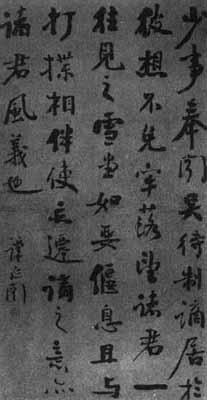 少事奉聞吳待制謫居於
彼想不免牢落望諸君一
往見之雪堂如要偃息且與
打揲相伴使忘遷謫之意亦
諸君風義也
譚延闓